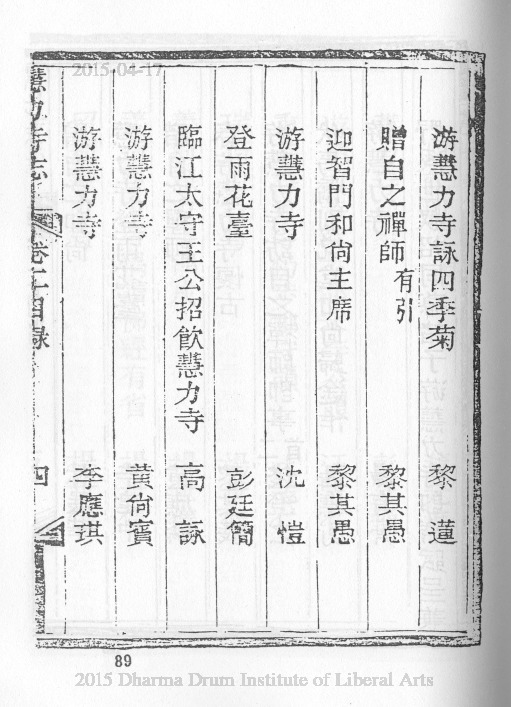 2015-04-17
游慧力寺詠四季菊 黎蓮
贈自之禪師有引 黎其愚
迎智門和尙主席 黎其愚
游慧力寺 沈愷
登雨花臺 彭廷簡
臨江太守王公招飮慧力寺 高詠
游慧力寺 黃尙賓
游慧力寺 李應琪
慧力寺志 卷二目錄 四
89
2015 Dharma Drum Institute of Liberal Arts